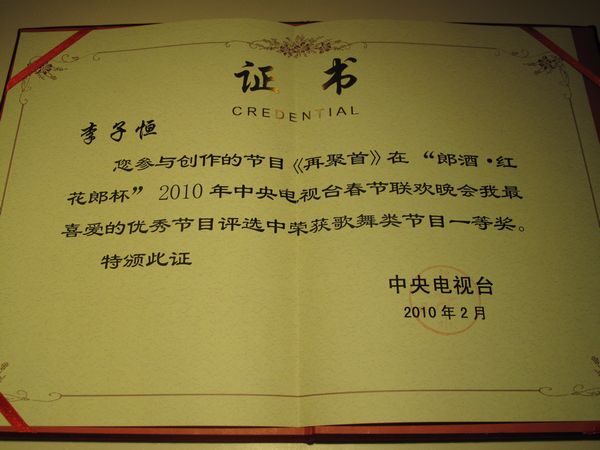 证 书
CREDENTIAL
李子恒
您参与创作的节目《再聚首》在“郎酒·红
花郎杯”2010年中央电视台春节联欢晚会我最
喜爱的优秀节目评选中荣获歌舞类节目一等奖。
特颁此证
中央电视台
2010年2月